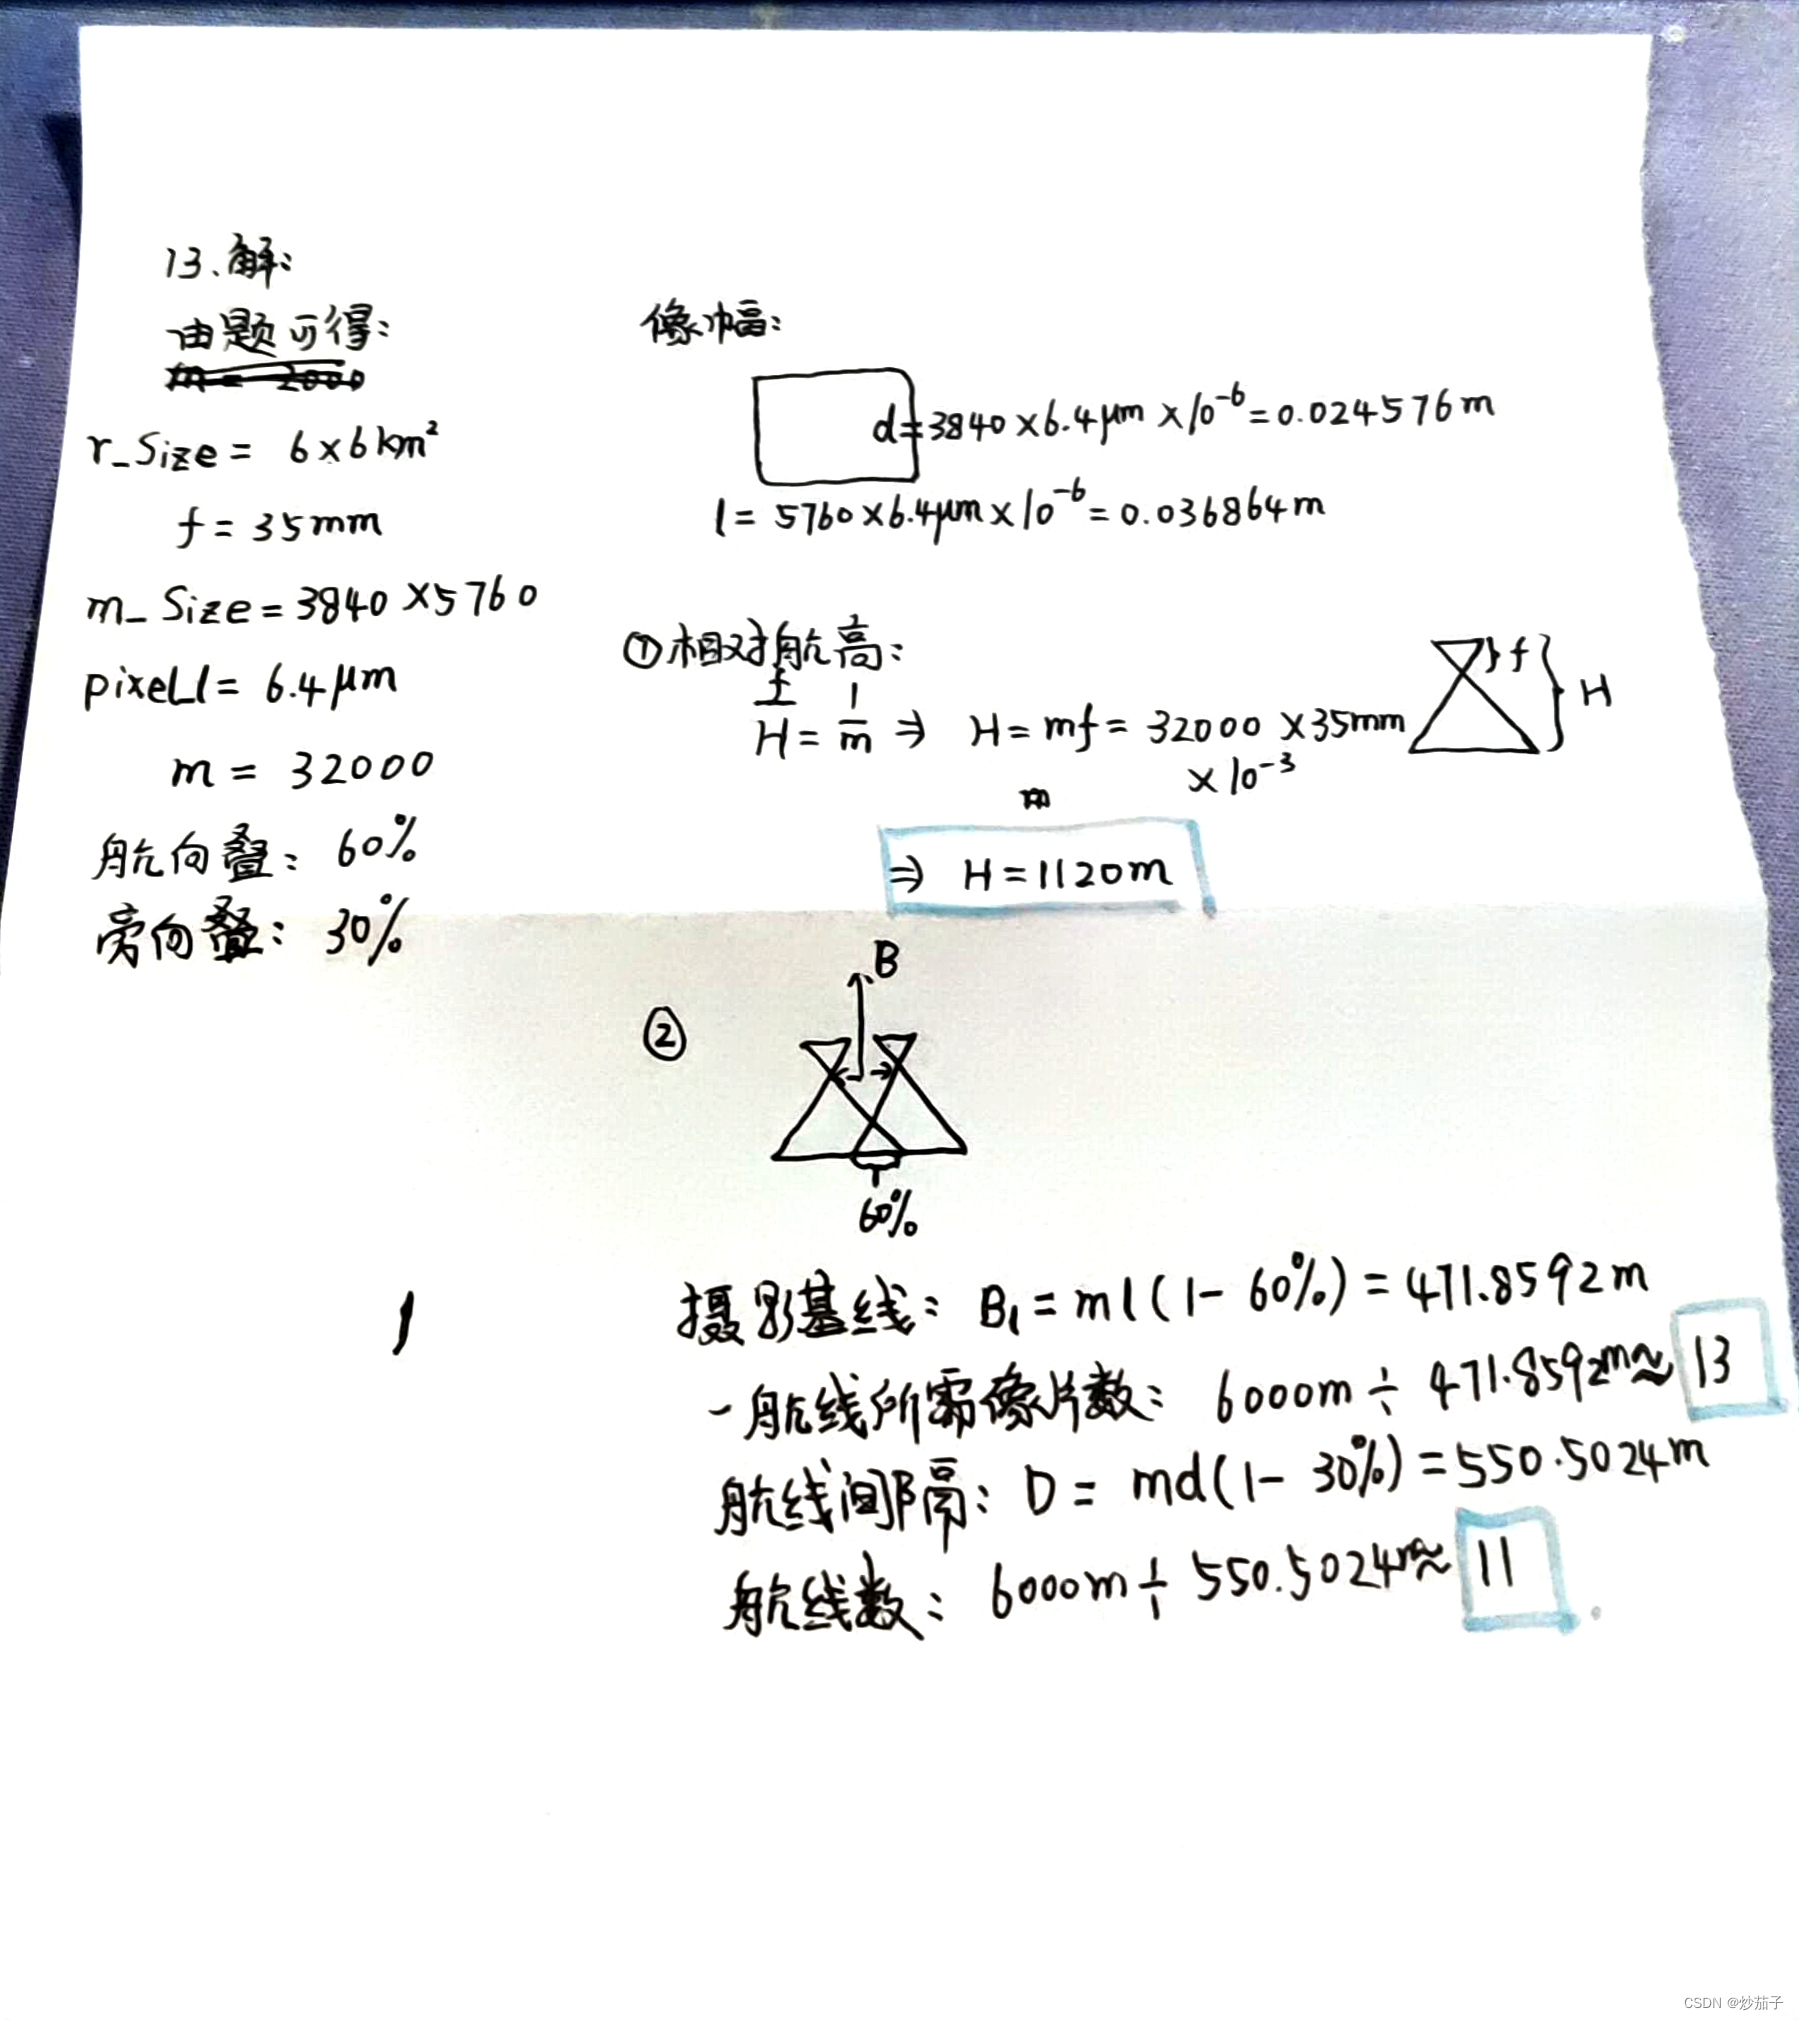 13、解:
由题可得:
m = 2000
r_Size = 6×6km²
f = 35mm
m_Size = 3840×5760
pixel_l = 6.4μm
m = 32000
航向叠: 60%
旁向叠: 30%
像幅:
d=3840×6.4μm×10⁻⁶=0.024576m
l = 5760×6.4μm×10⁻⁶=0.036864m
①相对航高:
f/H = 1/m ⇒ H=mf= 32000×35mm
×10⁻³
} f } H
⇒ H=1120m
②
B
60%
摄影基线: B₁=ml(1-60%)=471.8592m
一航线所需像片数: 6000m÷471.8592m≈13
航线间隔: D= md(1-30%)=550.5024m
航线数: 6000m÷550.5024m≈11
CSDN @炒茄子